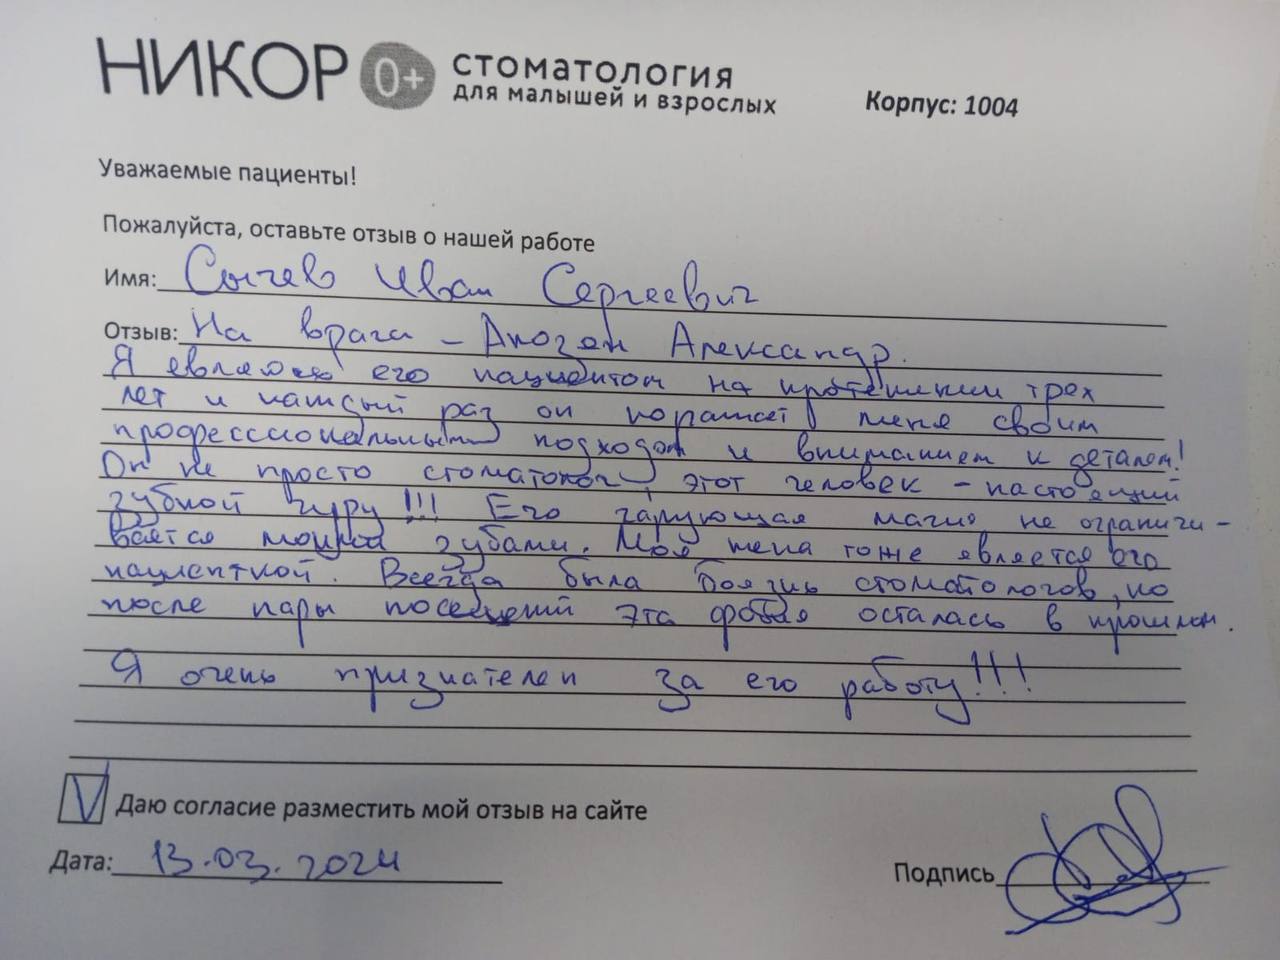 НИКОР 0+ стоматология
для малышей и взрослых
Корпус: 1004
Уважаемые пациенты!
Пожалуйста, оставьте отзыв о нашей работе
Имя: Сычев Иван Сергеевич
Отзыв: На врача - Алозян Александр.
Я являюсь его пациентом на протяжении трех
лет и каждый раз он поражает меня своим
профессиональным подходом и вниманием к деталям!
Он не просто стоматолог, этот человек - настоящий
зубной гуру!!! Его чарующая магия не ограничи-
вается моими зубами. Моя жена тоже является его
пациенткой. Всегда была боязнь стоматологов, но
после пары посещений эта фобия осталась в прошлом.
Я очень признателен за его работу!!!
Даю согласие разместить мой отзыв на сайте
Дата: 13.03.2024
Подпись